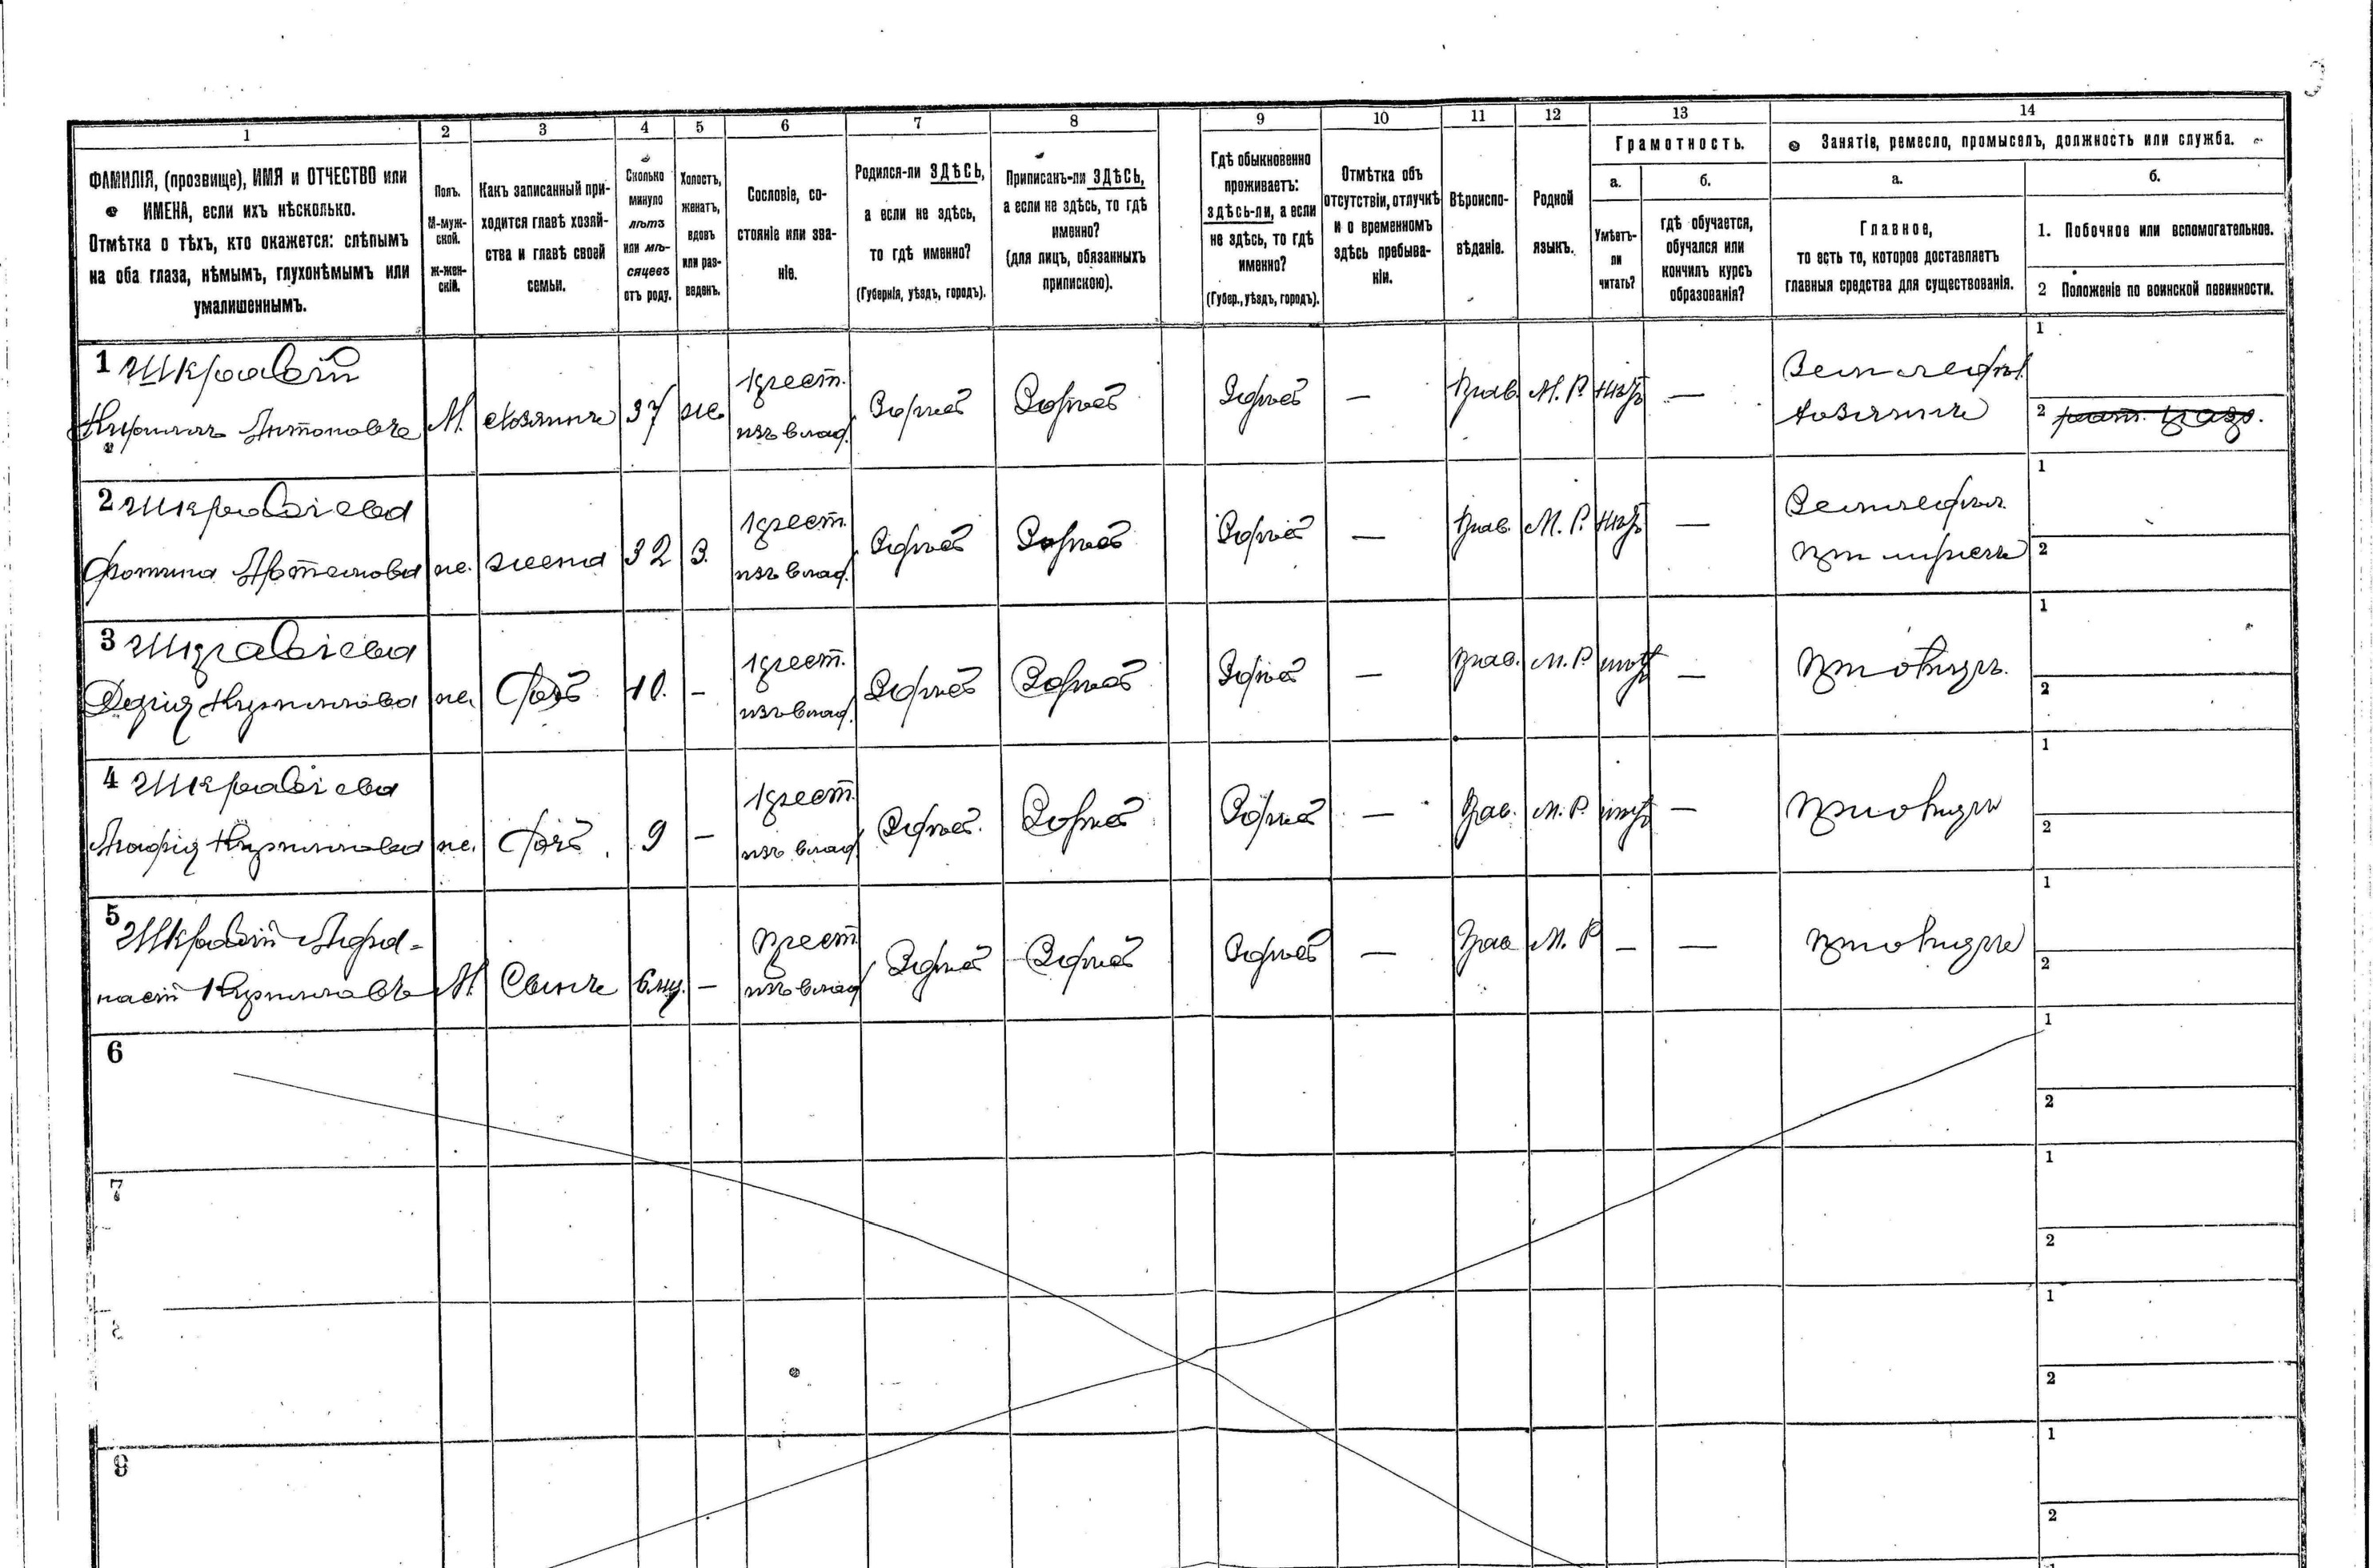 1 2 3 4 5 6 7 8 9 10 11 12 13 14
ФАМИЛІЯ, (прозвище), ИМЯ и ОТЧЕСТВО или
ИМЕНА, если ихъ нѣсколько.
Отмѣтка о тѣхъ, кто окажется: слѣпымъ
на оба глаза, нѣмымъ, глухонѣмымъ или
умалишеннымъ.
Полъ.
М-муж-
ской.
Ж-жен-
скій.
Какъ записанный при-
ходится главѣ хозяй-
ства и главѣ своей
семьи.
Сколько
минуло
лѣтъ
или мѣ-
сяцевъ
отъ роду.
Холостъ,
женатъ,
вдовъ
или раз-
веденъ.
Сословіе, со-
стояніе или зва-
ніе.
Родился-ли ЗДѢСЬ,
а если не здѣсь,
то гдѣ именно?
(Губернія, уѣздъ, городъ).
Приписанъ-ли ЗДѢСЬ,
а если не здѣсь, то гдѣ
именно?
(для лицъ, обязанныхъ
припискою).
Гдѣ обыкновенно
проживаетъ:
здѣсь-ли, а если
не здѣсь, то гдѣ
именно?
(Губер., уѣздъ, городъ).
Отмѣтка объ
отсутствіи, отлучкѣ
и о временномъ
здѣсь пребыва-
ніи.
Вѣроиспо-
вѣданіе.
Родной
языкъ.
Грамотность.
а.
Умѣетъ-
ли
читать?
б.
гдѣ обучается,
обучался или
кончилъ курсъ
образованія?
Занятіе, ремесло, промыселъ, должность или служба.
а.
Главное,
то есть то, которое доставляетъ
главныя средства для существованія.
б.
1. Побочное или вспомогательное.
2 Положеніе по воинской повинности.
1 Шкравій
Антоновъ М. хозяинъ 37 же. крест. изъ влад. Здѣсь Здѣсь Здѣсь — Прав. М. Р. нѣтъ — Земледѣл. хозяинъ 1 2
2 Шкравіева
Фотина ж. жена 32 З. крест. изъ влад. Здѣсь Здѣсь Здѣсь — Прав. М. Р. нѣтъ — Земледѣл. при мужѣ 1 2
3 Шкравіева
Кирилова ж. дочь 10. - крест. изъ влад. Здѣсь Здѣсь Здѣсь — Прав. М. Р. нѣтъ — при отцѣ 1 2
4 Шкравіева
Кирилова ж. дочь 9 — крест. изъ влад. Здѣсь Здѣсь Здѣсь — Прав. М. Р. нѣтъ — при отцѣ 1 2
5 Шкравій Афа-
насій Кириловъ М. Сынъ 6 м. — крест. изъ влад. Здѣсь Здѣсь Здѣсь — Прав М. Р — — при отцѣ 1 2
6 1 2
7 1 2
8 1 2
9 1 2